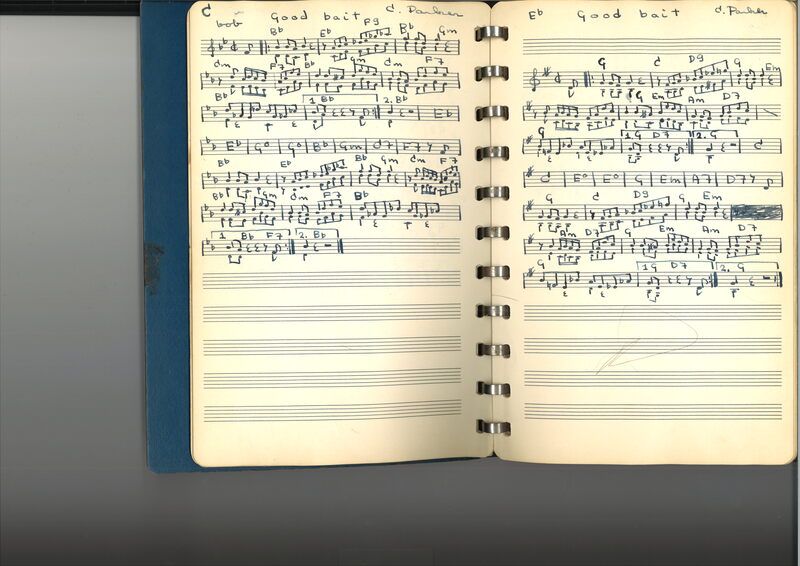 C Good bait C. Parker
bob
Bb Eb F9 Bb Gm
Cm F7 Bb Gm Cm F7
Bb 1. Bb 2. Bb Eb
Eb G° G° Bb Gm C7 F7
Bb Eb Bb Gm Cm F7
Bb Gm Cm F7 Bb
1. Bb F7 2. Bb
Eb Good bait C. Parker
G C D9 G Em
G Em Am D7
G 1. G D7 2. G C
C E° E° G Em A7 D7
G C D9 G Em
Am D7 G Em Am D7
G 1. G D7 2. G